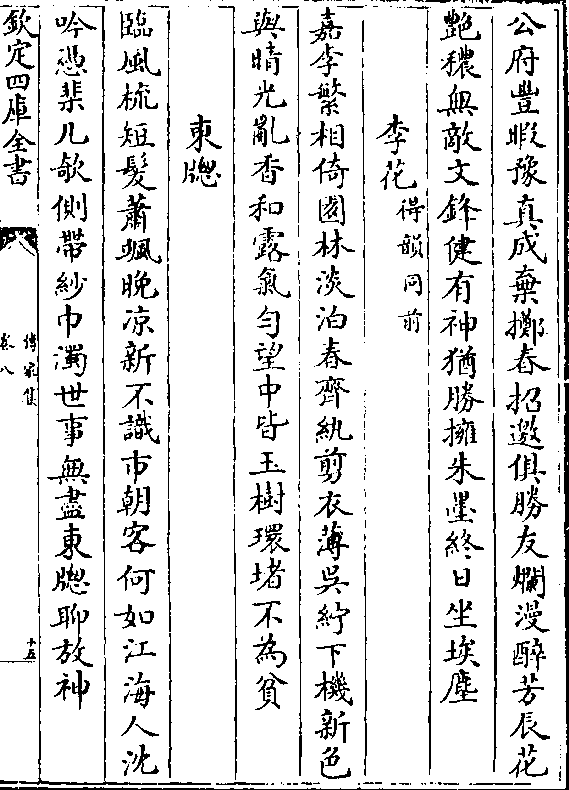 公府豐暇豫真成棄擲春招邀俱勝友爛漫醉芳辰花
艶穠無敵文鋒健有神猶勝擁朱墨終日坐埃塵
李花得韻同前
嘉李繁相倚園林淡泊春齊紈剪衣薄吳紵下機新色
與晴光亂香和露氣匀望中皆玉樹環堵不為貧
東牕
臨風梳短髮蕭颯晚凉新不識市朝客何如江海人沈
吟憑棐几欹側帶紗巾濁世事無盡東牕聊放神
欽定四庫全書
傳家集
卷八
十五